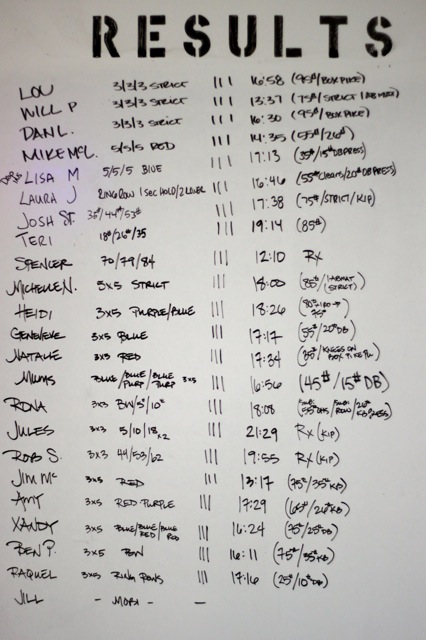 RESULTS
LOU 3/3/3 STRICT III 16:58 (95#/BOX PIKE)
WILL P 3/3/3 STRICT III 13:37 (75#/STRICT/ABMAT)
DAN L. 3/3/3 STRICT III 16:30 (95#/BOX PIKE)
MIKE MCL. 5/5/5 RED III 14:35 (55#/26#)
LISA M 5/5/5 BLUE III 17:13 (35#/15# DB PRESS)
LAURA J RING ROW 1 SEC HOLD/2 LOWER III 16:46 (55# /20# DB PRESS)
JOSH ST. 35#/44#/53# III 17:38 (75#/STRICT/KIP)
TERI 18#/26#/35 III 19:14 (85#)
SPENCER 70/79/84 III 12:10 RX
MICHELLE N. 5x5 STRICT III 18:00 (85#/1 ABMAT STRICT)
HEIDI 3x5 PURPLE/BLUE III 18:26
GENEVIEVE 3x5 BLUE III 17:17 (55#/20#DB)
NATALIE 3x5 RED III 17:34 (85#/KNEES ON BOX PIKE PU.)
MUMS BLUE/BLUE/BLUE PURP PURP 3x5 III 16:56 (45#/15# DB)
RONA 3x3 BW/5#/10# III 18:08
JULES 3x3 5/10/18 x2 III 21:29 RX (KIP)
ROB S. 3x3 44/53/62 III 19:55 RX (KIP)
JIM MC 3x5 RED III 13:17 (75#/35#KB)
AMY 3x5 RED PURPLE III 17:29 (65#/26#KB)
XANDY 3x5 BLUE/BLUE/BLUE RED RED III 16:24 (75#/25#DB)
BEN P. 3x5 BW III 16:11 (75#/35#KB)
RAQUEL 3x5 RING ROWS III 17:16 (25#/10#DB)
JILL - MOBI - -